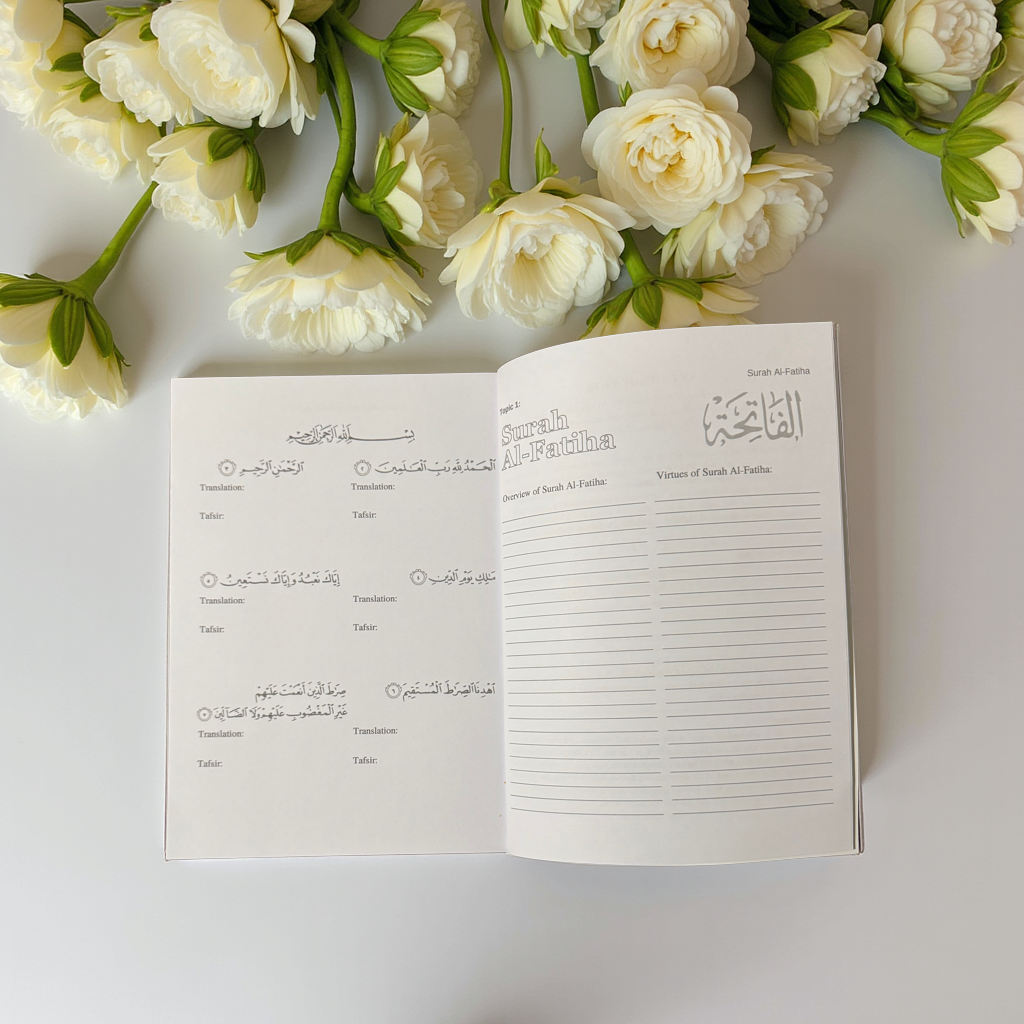 Surah Al-Fatiha
Topic 1:
Surah
Al-Fatiha
الْفَاتِحَة
Overview of Surah Al-Fatiha:
Virtues of Surah Al-Fatiha:
بِسْمِ ٱللَّهِ ٱلرَّحْمَٰنِ ٱلرَّحِيمِ
ٱلْحَمْدُ لِلَّهِ رَبِّ ٱلْعَـٰلَمِينَ ٢
Translation:
Tafsir:
ٱلرَّحْمَٰنِ ٱلرَّحِيمِ ٣
Translation:
Tafsir:
مَـٰلِكِ يَوْمِ ٱلدِّينِ ٤
Translation:
Tafsir:
إِيَّاكَ نَعْبُدُ وَإِيَّاكَ نَسْتَعِينُ ٥
Translation:
Tafsir:
ٱهْدِنَا ٱلصِّرَٰطَ ٱلْمُسْتَقِيمَ ٦
Translation:
Tafsir:
صِرَٰطَ ٱلَّذِينَ أَنْعَمْتَ عَلَيْهِمْ
غَيْرِ ٱلْمَغْضُوبِ عَلَيْهِمْ وَلَا ٱلضَّآلِّينَ ٧
Translation:
Tafsir: